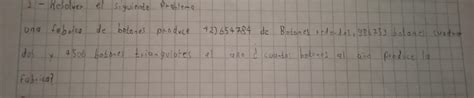 2.- Resolver el siguiente Problema
una fabrica de botones produce 421654784 de Botones redondos, botones cuadra
dos y botones triangulares el año ¿ cuantos botones al año produce la
fabrica?